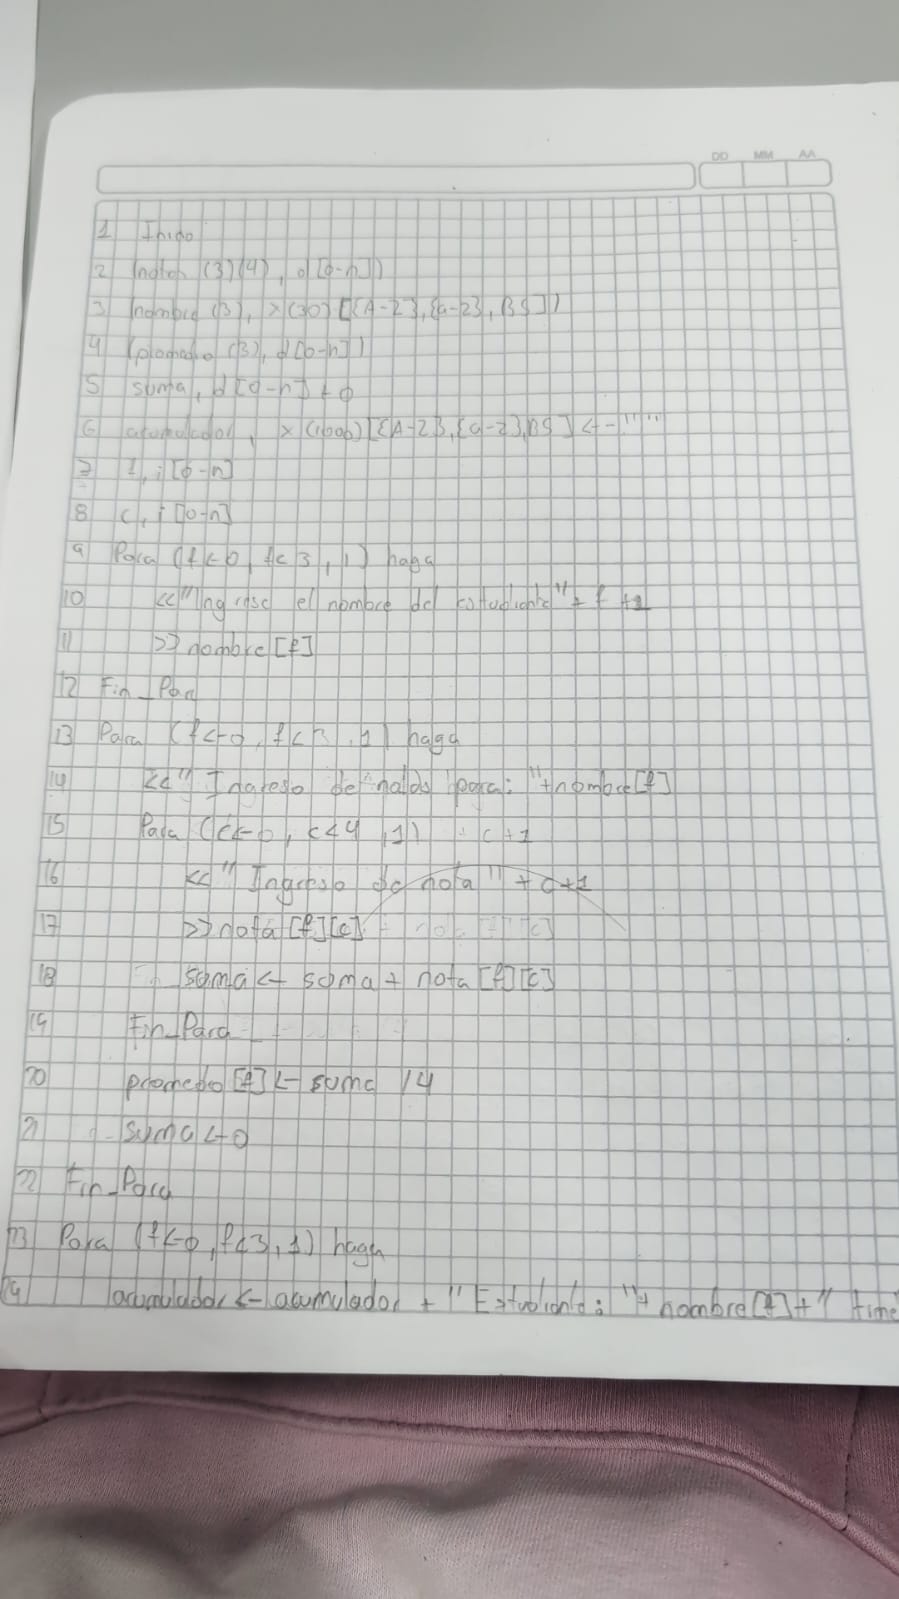 DD MM AA
1 Inicio
2 (notas (3)(4), d[0-n])
3 (nombre (3), x(30) [{A-Z},{a-z},BS])
4 (promedio (3), d[0-n])
5 suma, d[0-n] ← 0
6 acumulador, x(1000)[{A-Z},{a-z},BS] <-- " "
7 f, i [0-n]
8 c, i [0-n]
9 Para (f<-0, f<3, 1) haga
10 <<"Ingrese el nombre del estudiante" + f +1
11 >> nombre [f]
12 Fin_Para
13 Para (f<-0, f<3, 1) haga
14 <<" Ingreso de notas para: "+nombre[f]
15 Para (c<-0, c<4, 1) c+1
16 <<" Ingreso de nota " + c+1
17 >> nota [f][c]
18 suma <- suma + nota [f][c]
19 Fin_Para
20 promedio [f] <- suma /4
21 suma <-0
22 Fin_Para
23 Para (f<-0, f<3, 1) haga
24 acumulador <- acumulador + "Estudiante: "+ nombre[f]+" tiene